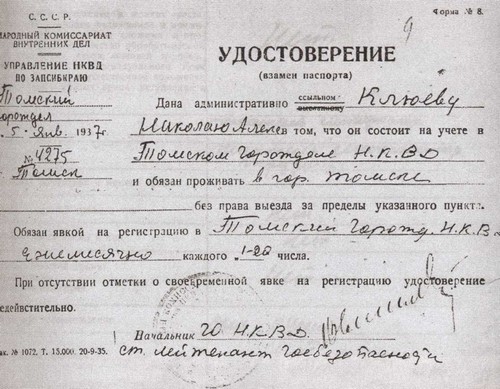 С. С. С. Р.
Форма № 8.
9
НАРОДНЫЙ КОМИССАРИАТ
ВНУТРЕННИХ ДЕЛ
УПРАВЛЕНИЕ НКВД
ПО ЗАПСИБКРАЮ
Томский
горотдел
5 янв. 1937 г.
№ 4275
Томск
УДОСТОВЕРЕНИЕ
(взамен паспорта)
Дана административно ссыльном высланному Клюеву
Николаю Алекс в том, что он состоит на учете в
Томском горотделе Н.К.В.Д
и обязан проживать в гор. Томске
без права выезда за пределы указанного пункта.
Обязан явкой на регистрацию в Томский горотд. Н.К.В.Д
ежемесячно каждого 1-го числа.
При отсутствии отметки о своевременной явке на регистрацию удостоверение
недейвстительно.
Начальник ГО Н.К.В.Д.
ст. лейтенант госбезопасности
Зак. № 1072. Т. 15.000. 20-9-35.